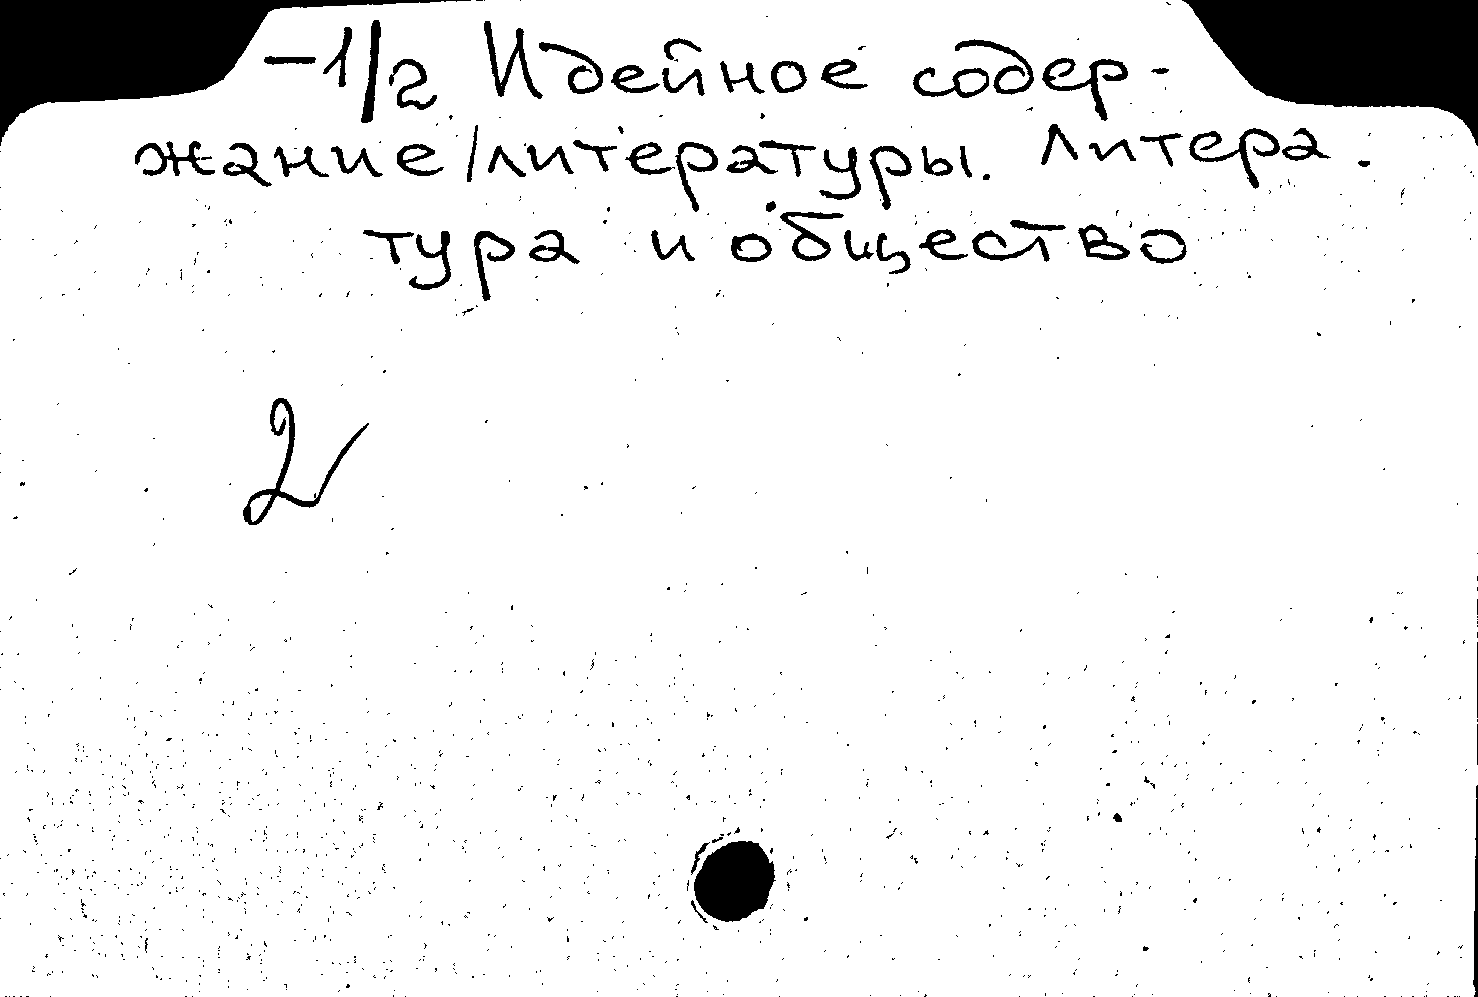 -1/2 Идейное содер-
жание/литературы. Литера.
тура и общество
2